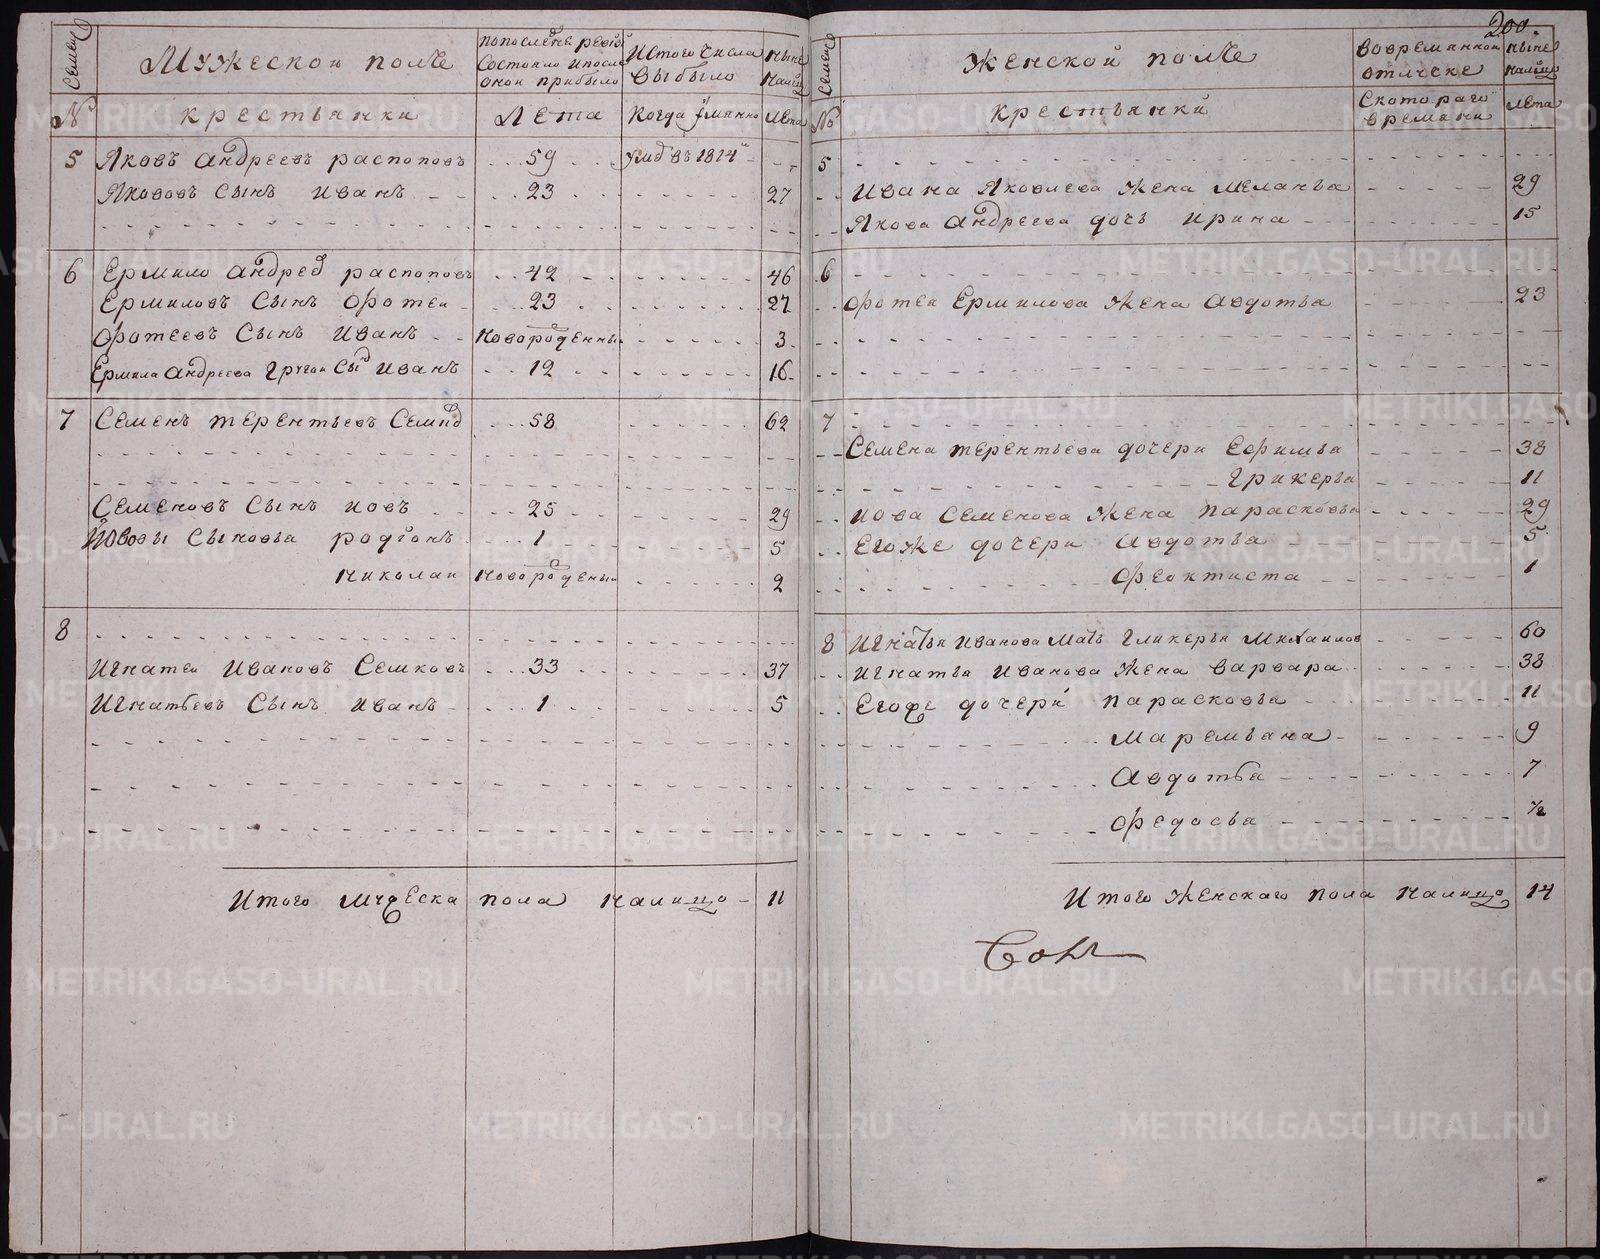 200
Семеи
Мужескои полъ
попослѣдне ревіз
Состояло ипосле
онои прибыло
Истого числа
выбыло
ныне
налицо
№
крестьянки
Лета
Когда имянно
Лета
5 Яковъ андреевъ распоповъ 59 умъ въ 1814
Яковлвъ Сынъ иванъ 23 27
6 Ермило андреев распоповъ 42 46
Ермиловъ Сынъ фотеи 23 27
фотеевъ Сынъ иванъ новорожденныи 3
Ермила андреева другои Сынъ иванъ 12 16
7 Семенъ терентьевъ Семков 58 62
Семеновъ Сынъ иовъ 25 29
иововы Сыновьа родіонъ 1 5
николаи новорожденыи 2
8
игнатеи ивановъ Семковъ 33 37
игнатьевъ Сынъ иванъ 1 5
Итого мужеска пола налицо 11
Семеи
Женскои полъ
вовременнои
отлучке
ныне
налицо
№
крестьянки
Скотораго
времени
Лета
5
ивана яковлева жена меланьа 29
якова андреева дочь ирина 15
6
фотеи Ермилова жена авдотьа 23
7
Семена терентьева дочери Ефимьа 38
Грикерьа 11
иова Семенова жена парасковьа 29
Егоже дочери авдотьа 5
феоктиста 1
8 игнатьи иванова мать гликерьи михаилов 60
игнатьа иванова жена варвара 38
Егоже дочери парасковьа 11
маремьана 9
авдотьа 7
федосьа 1/2
Итого женскаго пола налицо 14